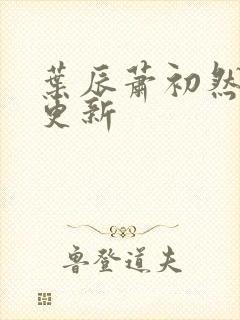 葉辰蕭初然
更新
魯登道夫